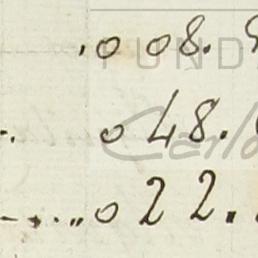 .008.
FUND
048.
Carlo
..022.